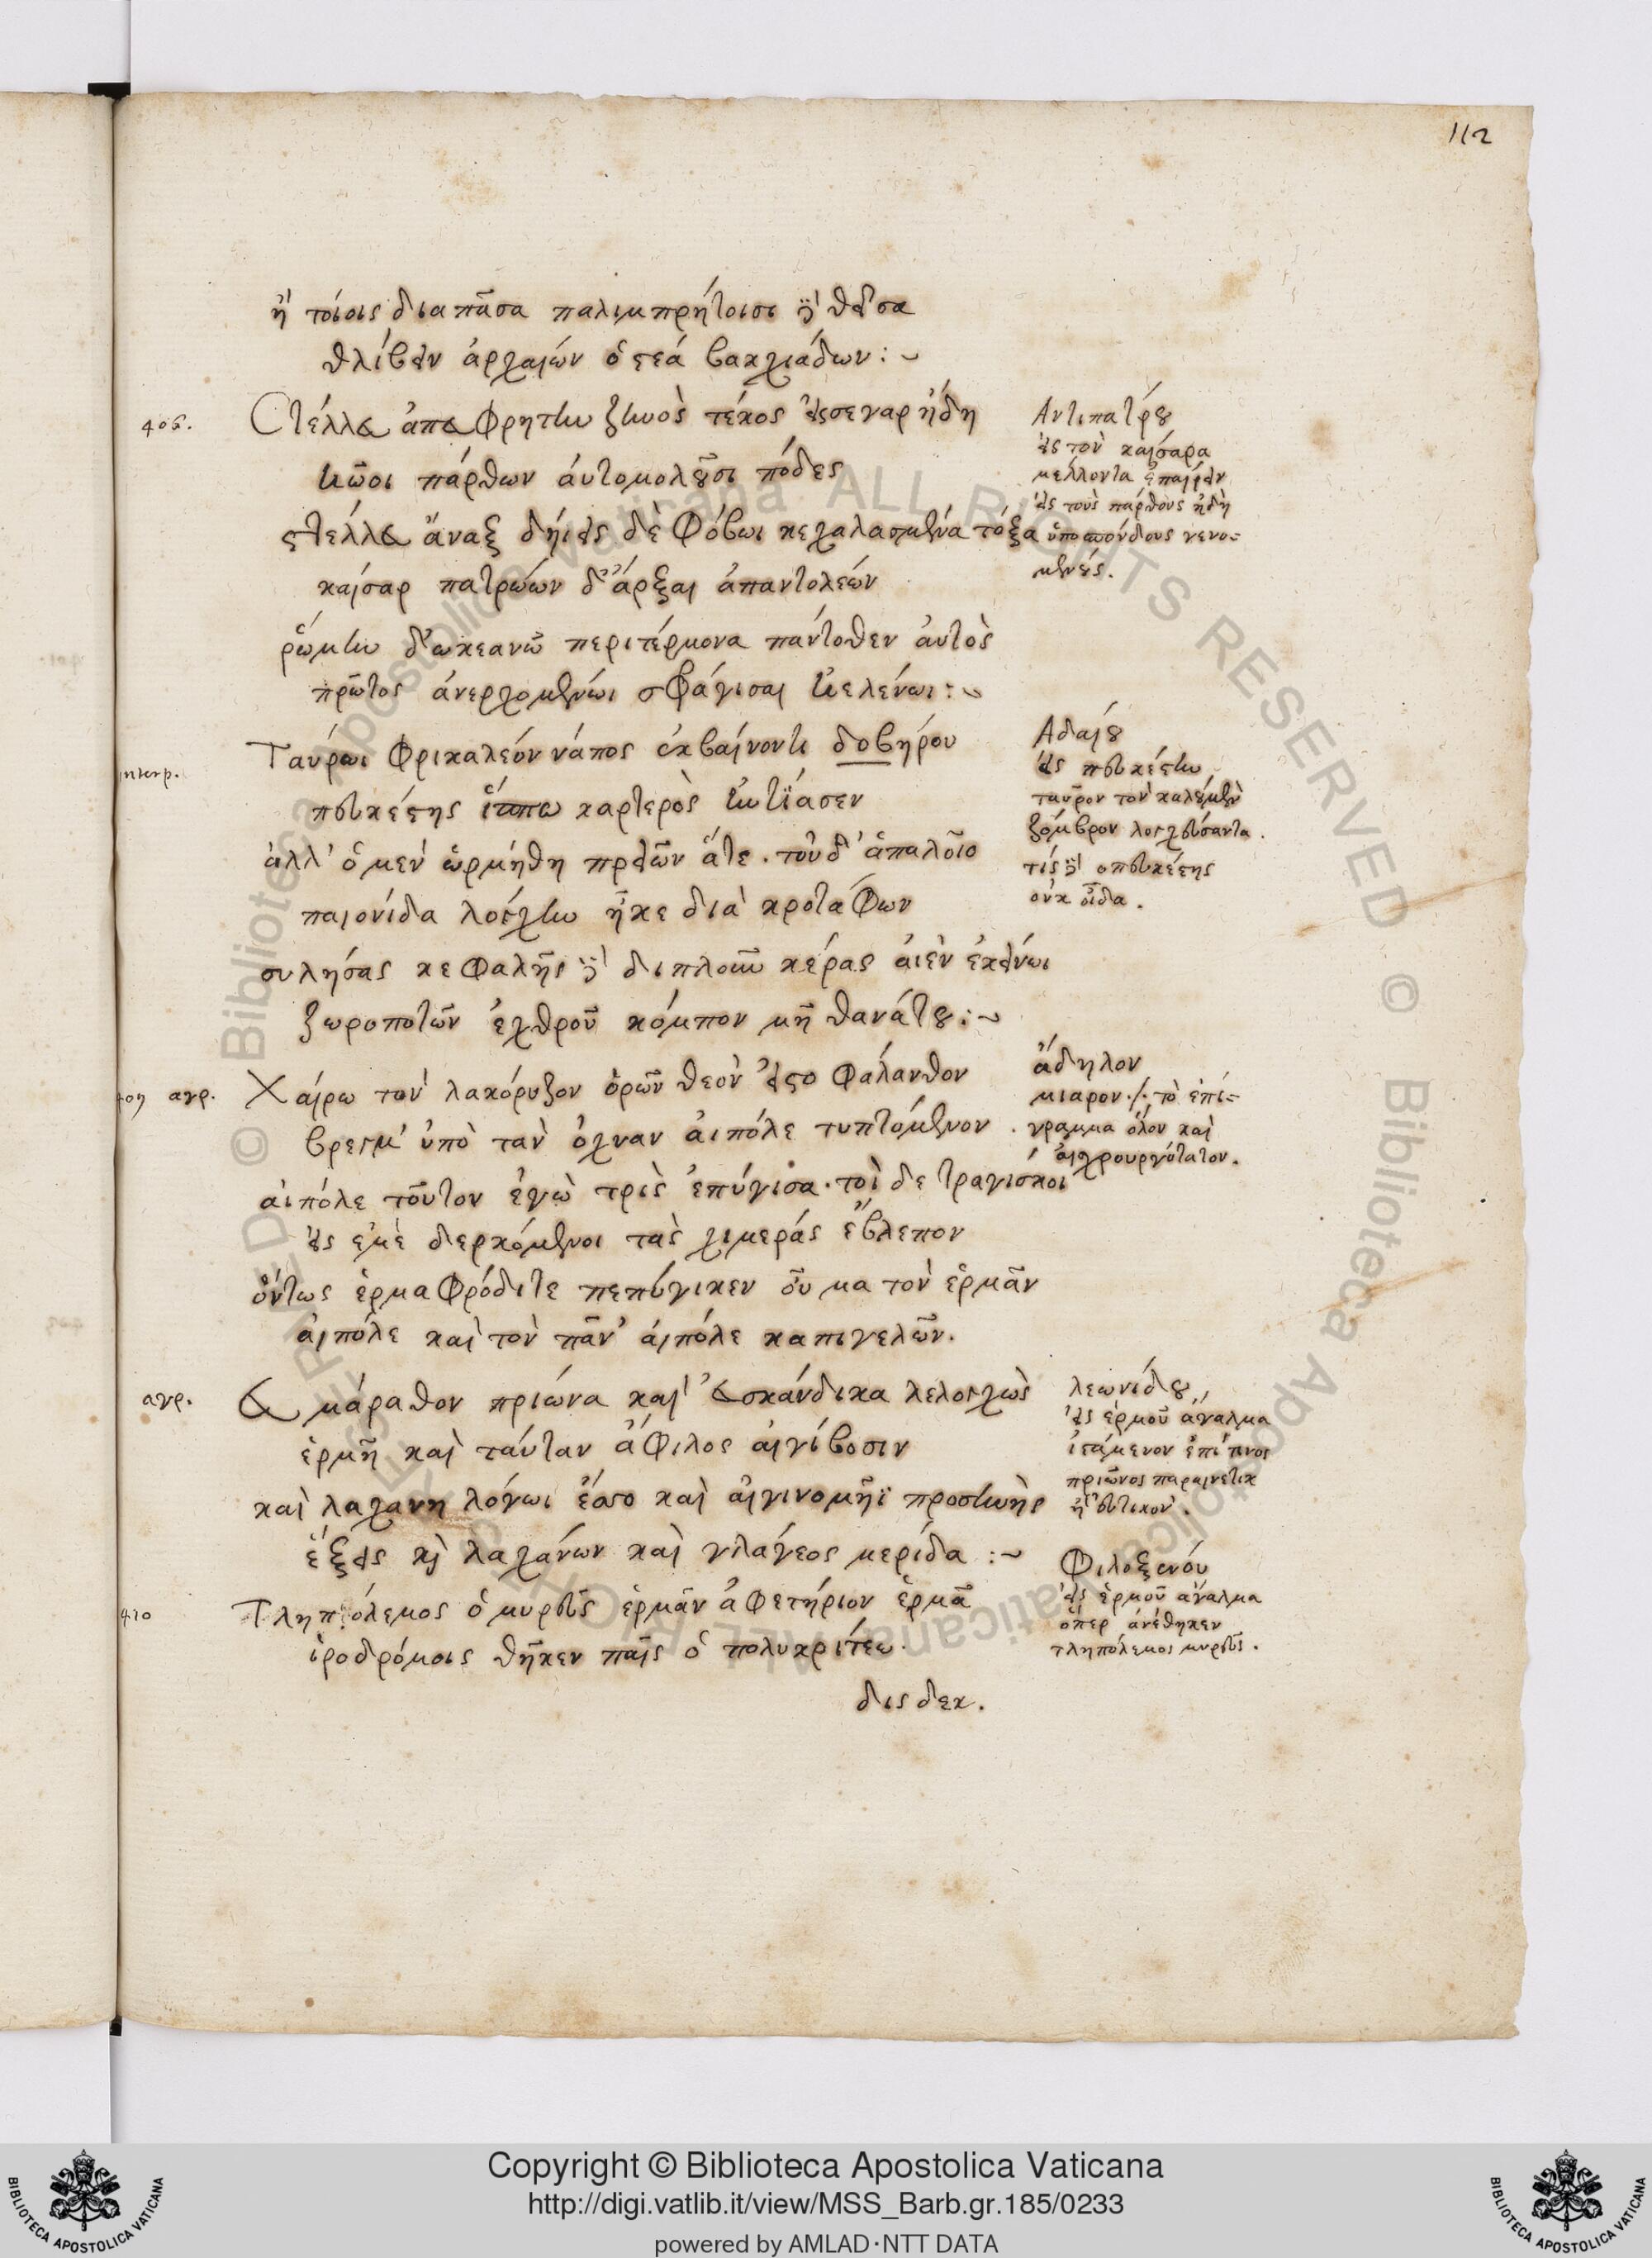 112
ἢ τοίοις διαπᾶσα παλιμπρήτοισι δὲ θεῖσα
θλίβειν ἀρχαιών ὀστεά βακχιάδων :~
406.
Στέλλευ ἐπ' εὐφρητην ζηνὸς τέκος εἰς σε γαρ ἠδη
ἠῶοι πάρθων ἀυτομολοῦσι πόδες
στέλλευ ἄναξ δήεις δὲ φόβωι κεχαλασμένα τόξα
καίσαρ πατρώων δ' ἄρξαι ἀπαντολεών
ῥώμην δ' ὠκεανῶ περιτέρμονα πάντοθεν ἀυτὸς
πρῶτος ἀνερχομένωι σφάγισαι ἠελενωι :~
Αντιπατρου
εἰς τὸν καίσαρα
μέλλοντα ἐπαίρειν
εἰς τοὺς πάρθους ἤδη
ὑποσπόνδους γενο-
μένους.
interp.
Ταύρωι φρικαλεόν νάπος ἐκβαίνοντι δοβήρου
πευκέστης ἵππω καρτερὸς ἠντίασεν
ἀλλ' ὁ μὲν ὡρμήθη πρειὼν ἅτε . τοῦ δ' ἁπαλοῖο
παιονίδα λόγχην ἧκε διὰ κροτάφων
συλήσας κεφαλῆς δὲ διπλοῦν κέρας ἀιὲν ἐκείνωι
ζωροποτῶν ἐχθροῦ κόμπον μῆ θανάτου :~
Αδαίου
εἰς πευκέστην
ταῦρον τὸν καλούμενον
ζόμβρον λογχεύσαντα .
τίς δὲ ὁ πευκέστης
οὐκ οἶδα .
αγρ.
Χαίρω τὸν λακόρυζον ὁρῶν θεὸν εἰς το φάλανθον
βρεγμ' ὑπὸ τὰν ὄχναν ἀιπόλε τυπτόμενον .
ἀιπόλε τοῦτον ἐγὼ τρὶς ἐπύγισα . τοὶ δε τραγίσκοι
εἰς εμὲ δερκόμενοι τὰς χιμεράς ἔβλεπον
ὄντως ἑρμαφρόδιτε πεπύγικεν οὐ μα τὸν ἑρμᾶν
ἀιπόλε καὶ τὸν πᾶν' ἀιπόλε καπιγελῶν.
ἄδηλον
μιαρον ./. τὸ ἐπί-
γραμμα ὅλον καὶ
αἰσχρουργότατον.
αγρ.
Εὐ μάραθον πριώνα καὶ εὐσκάνδικα λελογχὼς
ἑρμῆ καὶ ταύταν ἆ φίλος αἰγίβοσιν
καὶ λαχανη λόγωι ἔσσο καὶ αἰγινομῆϊ προσηνὴς
ἕξεις καὶ λαχάνων καὶ γλάγεος μερίδα :~
λεωνίδου,,
εἰς ἑρμοῦ ἄγαλμα
ἱστάμενον ἐπί τινος
πριῶνος παραινετικ
ἢ εὐτικον .
410
Τληπτόλεμος ὁ μυρεῦς ἑρμᾶν ἀφετήριον ἑρμᾶ
ἱροδρόμοις θῆκεν παῖς ὁ πολυκρίτεω .
δις δεκ.
Φιλοξενόυ
εἰς ἑρμοῦ ἄγαλμα
ὅπερ ἀνέθηκεν
τληπόλεμος μυρεῦς .
Copyright © Biblioteca Apostolica Vaticana
http://digi.vatlib.it/view/MSS_Barb.gr.185/0233
powered by AMLAD·NTT DATA
BIBLIOTECA APOSTOLICA VATICANA
BIBLIOTECA APOSTOLICA VATICANA